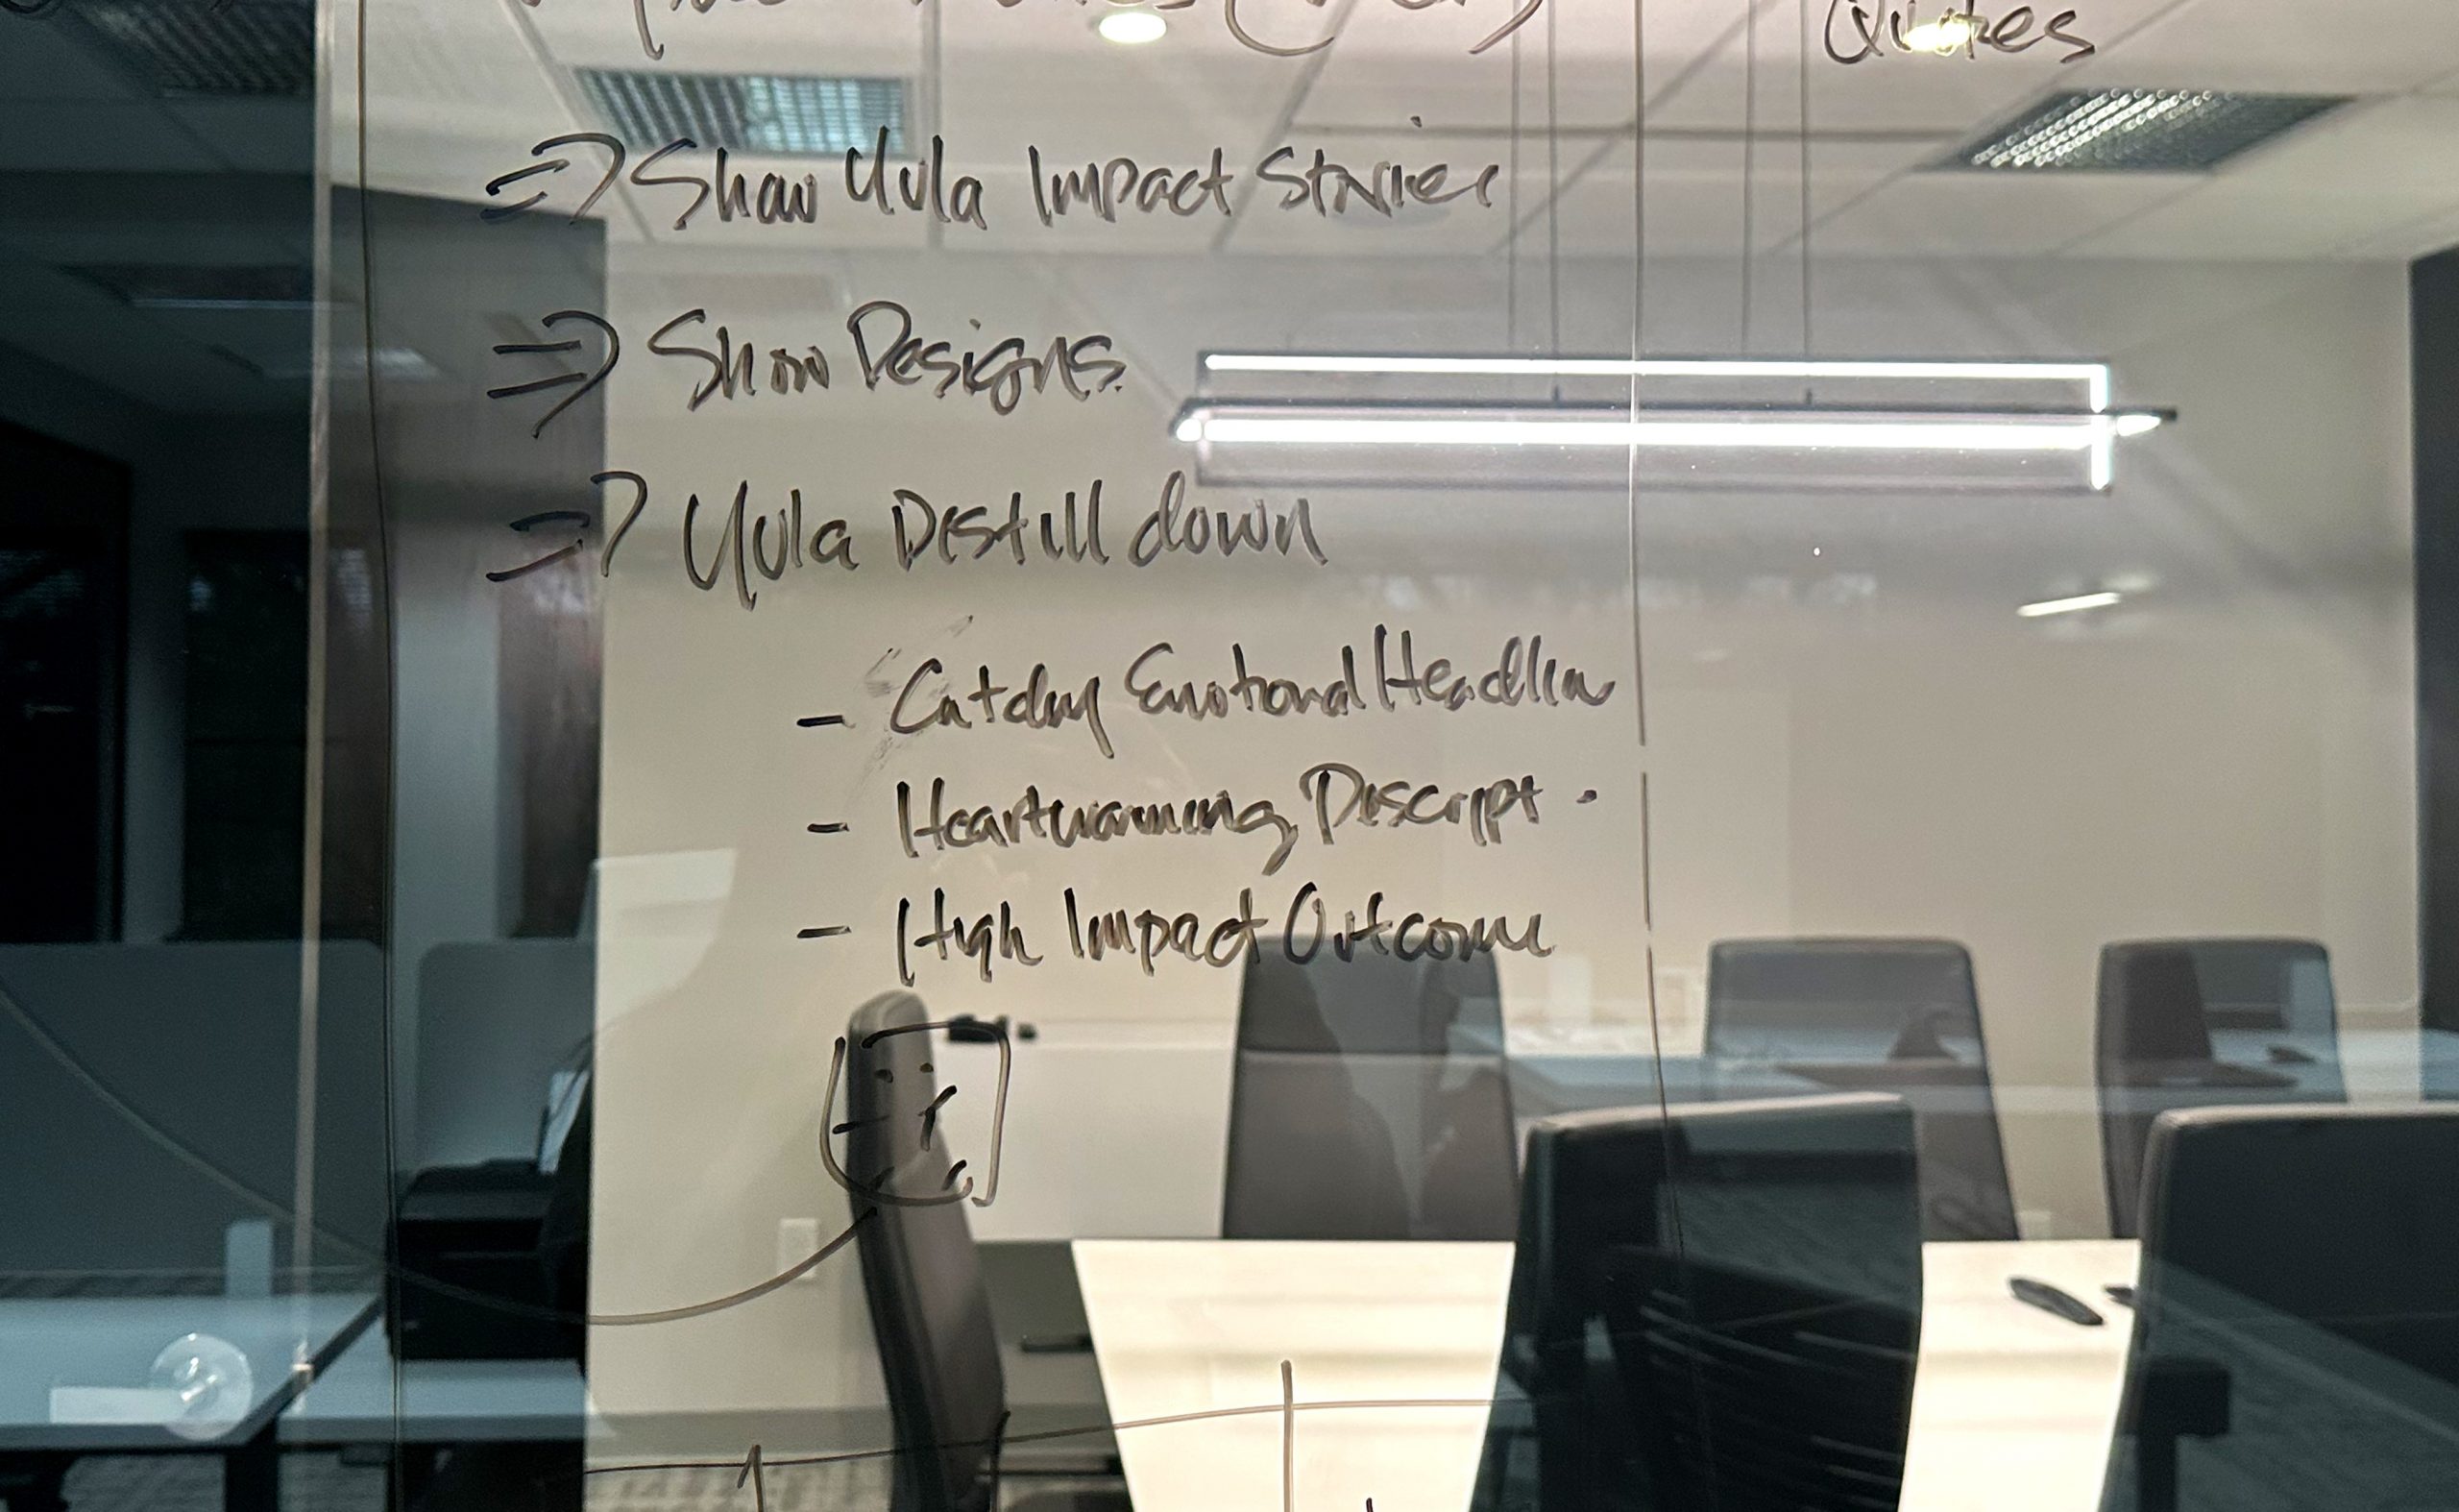 Quotes
⇒ Show Yula Impact Stories
⇒ Show Designs
⇒ Yula Distill down
- Catchy Emotional Headline
- Heartwarming Descript.
- High Impact Outcome